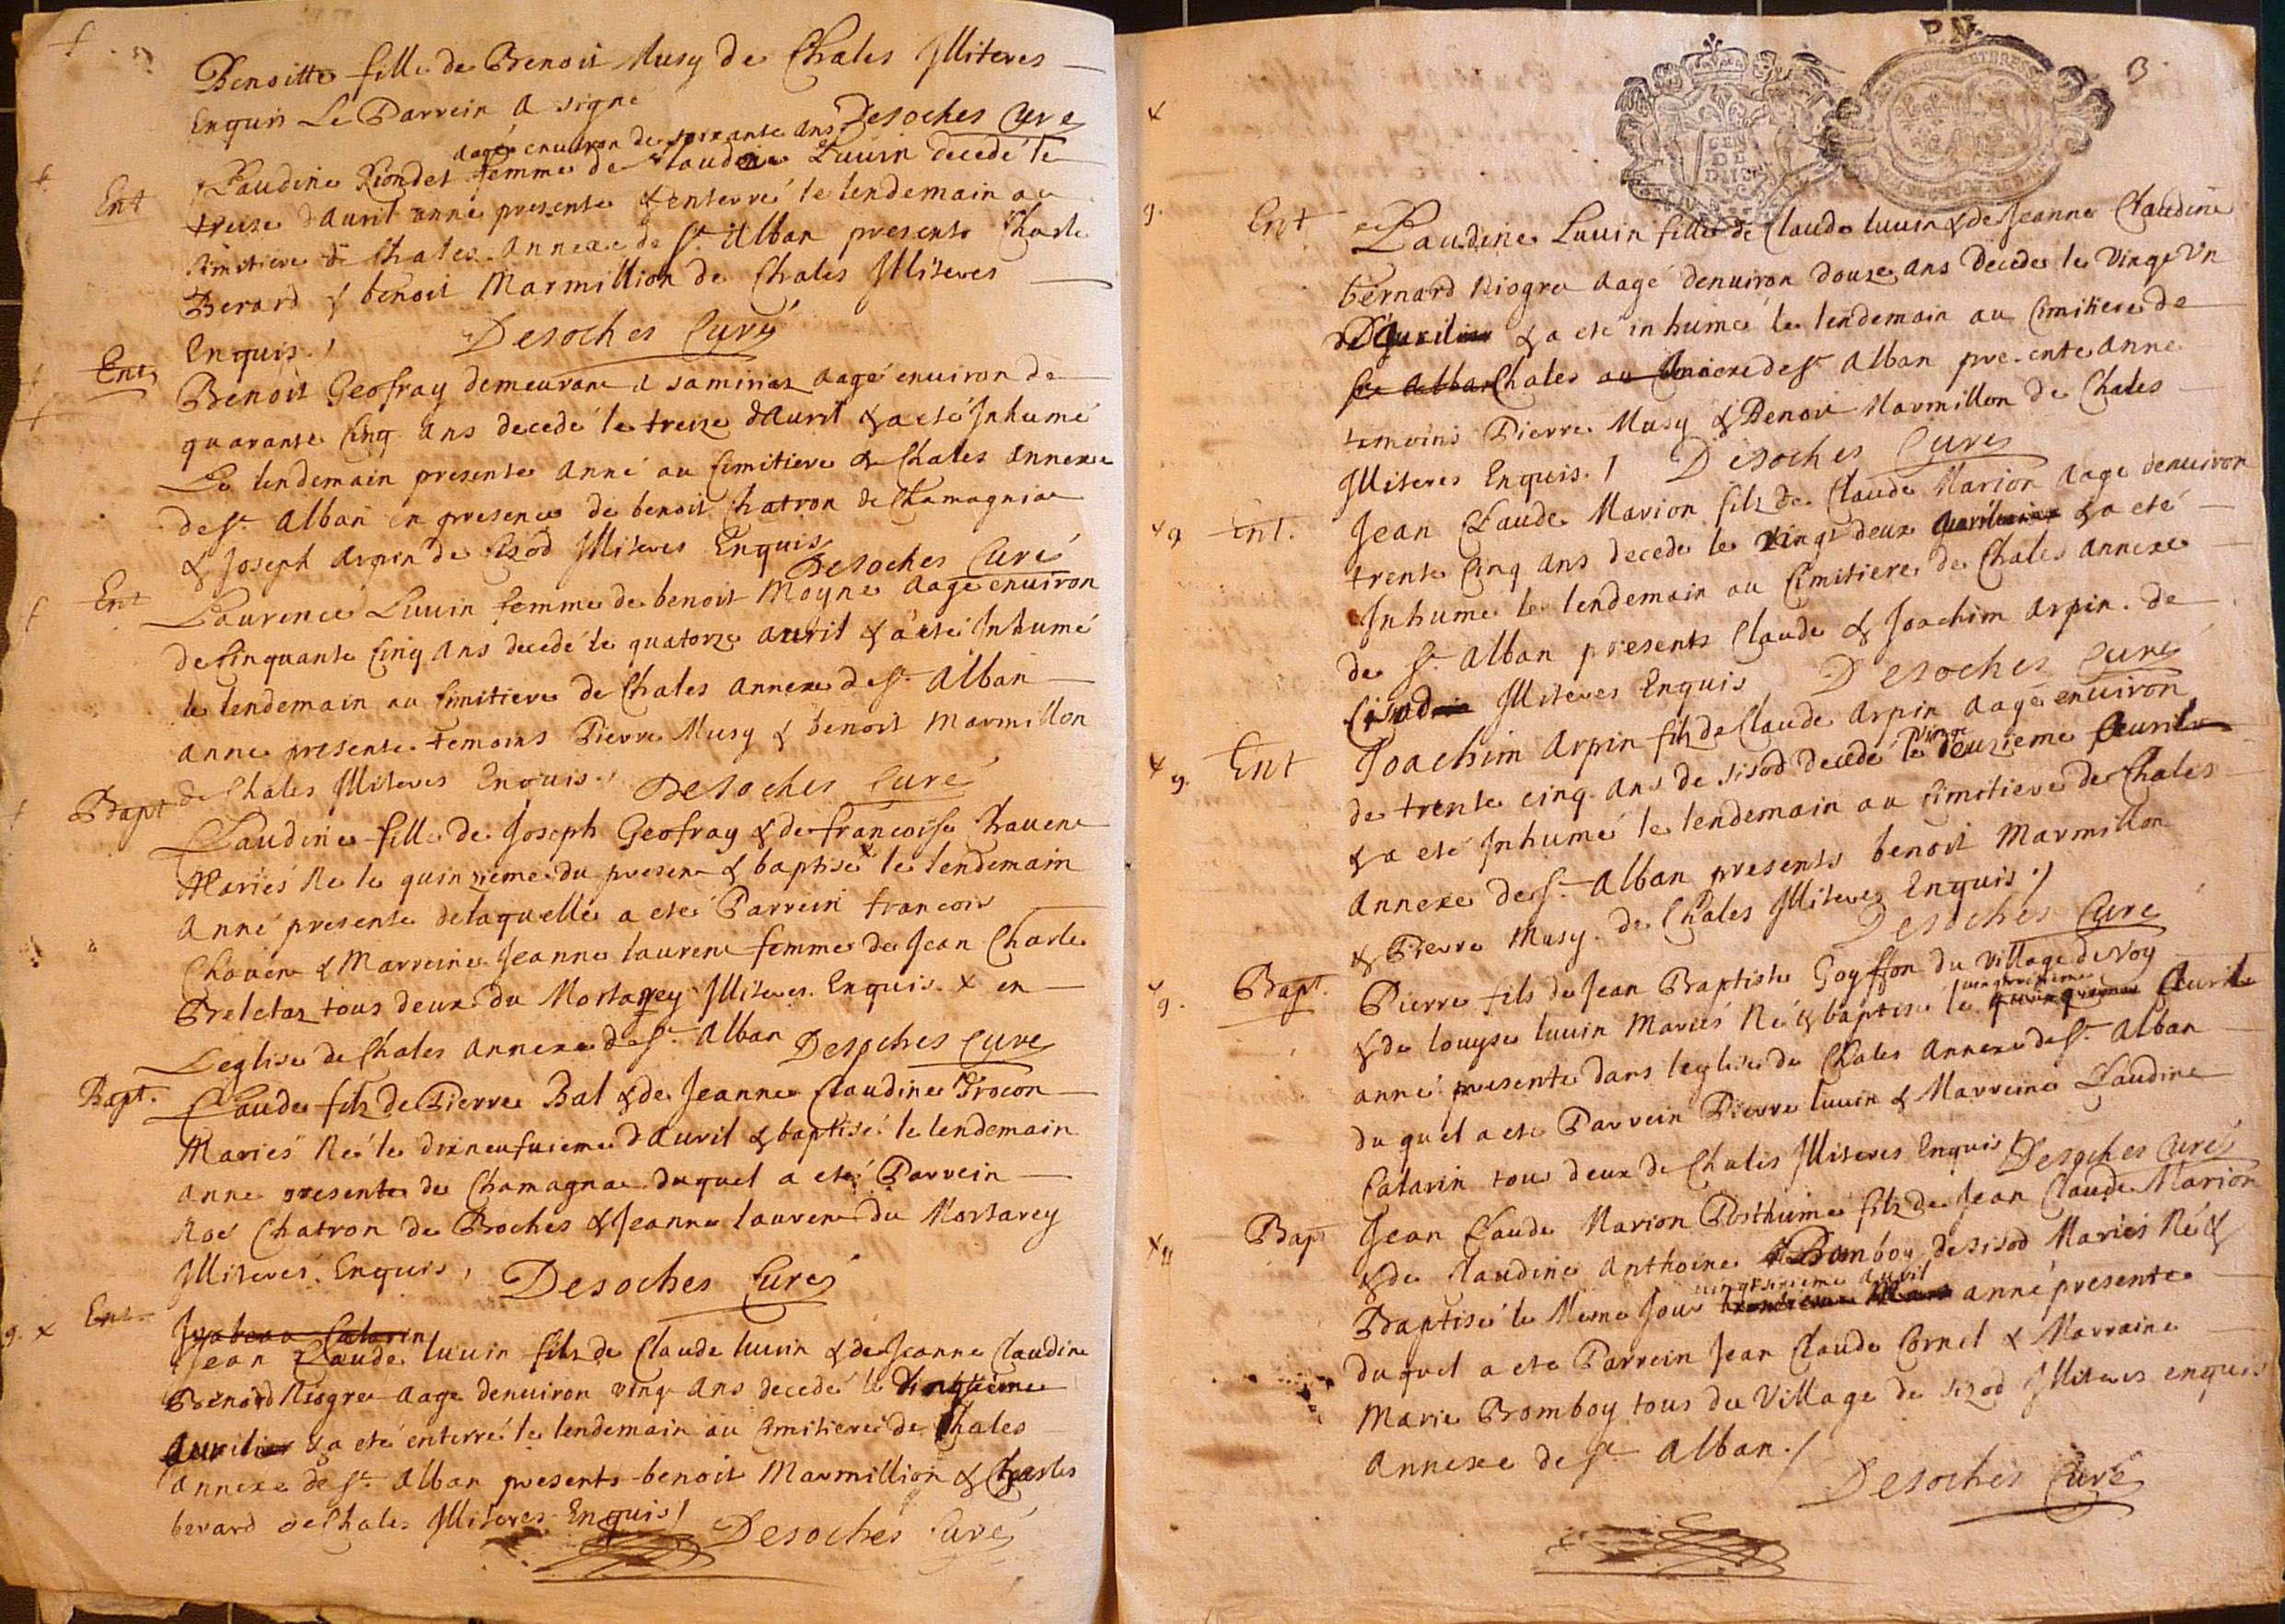 Benoitte fille de Benoit Musy de Chales Illiteres
Enquis Le Parrein a signé
Desoches Curé
aagée enuiron de soixante ans
Ent
Claudine Riondet femme de Claude Luuin decedé le
treize d'auril anné presente & enterré le lendemain au
Cimitiere de Chales annexe de St Alban presents Charle
Berard & benoit Marmillion de Chales Illiteres
Enquis./ Desoches Curé
Ent
Benoit Geofray demeurant a aagé enuiron de
quarante Cinq ans decedé le treize d'Auril & a eté Inhumé
Le lendemain presente anné au Cimitiere de Chales annexe
de St Alban en presence de benoit Chatron de Chamagniae
& Joseph Arpin de Cisod Illiteres Enquis
Desoches Curé
Ent
Laurence Luuin femme de benoit Moyne aagé enuiron
de Cinquante Cinq ans decedé le quatorze auril & a eté Inhumé
le lendemain au Cimitiere de Chales annexe de St Alban
anné presente temoins Pierre Musy & benoit Marmillon
de Chales Illiteres Enquis./ Desoches Curé
Bapt
Claudine fille de Joseph Geofray & de francoise Chauene
Mariés Né le quinzieme du present & baptisé x le lendemain
Anné presente de laquelle a eté Parrein francois
Chouene & Marreine Jeanne laurent femme de Jean Charle
Breletaz tous deux du Mortarey Illiteres Enquis x en
Leglise de Chales annexe de St Alban Desoches Curé
Bapt.
Claude filz de Pierre Bal & de Jeanne Claudine Trocon
Mariés Né le dixneufuieme d'auril & baptisé le lendemain
anné presente de Chamagnae duquel a eté Parrein
Noé Chatron de Broches & Jeanne laurent du Mortarey
Illiterés Enquis, Desoches Curé
g. x Ent
Jsabeau Catarin
Jean Claude luuin filz de Claude luuin & de Jeanne Claudine
Benard Niogre aagé denuiron vingt ans decedé le
auril & a eté enterré le lendemain au Cimitiere de Chales
annexe de St Alban presents benoit Marmillion & Charles
berard de Chales Illiteres Enquis/ Desoches Curé
P.N.
3
g. Ent
Claudine Luuin fille de Claude luuin & de Jeanne Claudine
bernard Niogre aagé denuiron douze ans decedé le vingt un
d'auril & a eté inhumé le lendemain au Cimitiere de
St Alban Chales au annexe de St Alban presente anné
temoins Pierre Musy & Benoit Marmillon de Chales
Illiteres Enquis./ Desoches Curé
x g Ent.
Jean Claude Marion filz de Claude Marion aagé denuiron
trente Cinq ans decedé le vingt deux & a eté
Inhumé le lendemain au Cimitiere de Chales annexe
de St Alban presents Claude & Joachim Arpin de
Cisod Illiteres Enquis Desoches Curé
x g. Ent
Joachim Arpin filz de Claude Arpin aagé enuiron
vingt
de trente cinq ans de sisod decedé le deuzieme Auril
& a eté Inhumé le lendemain au Cimitiere de Chales
annexe de St Alban presents benoit Marmillon
& Pierre Musy de Chales Illiteres Enquis./
Desoches Curé
x g. Bapt.
Pierre fils de Jean Baptiste Goyffon du village de voy
& de louyse luuin Mariés Né & baptisé le Auril
anné presente dans leglise de Chales annexe de St Alban
duquel a eté Parrein Pierre luuin & Marreine Claudine
Catarin tous deux de Chales Illiteres Enquis/ Desoches Curé
x Bap
Jean Claude Marion Posthume filz de Jean Claude Marion
& de Claudine Anthoine Bromboy de sisod Mariés Né &
vingtsixieme auril
Baptisé le Meme Jour anné presente
duquel a eté Parrein Jean Claude Cornel & Marraine
Marie Bromboy tous du Village de sisod Illiteres enquis
annexe de St Alban./
Desoches Curé